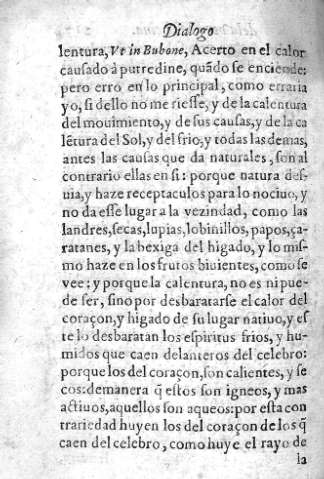 Dialogo
lentura, Vt in Bubone, Acerto en el calor
causado à putredine, quãdo se enciende:
pero erro en lo principal, como erraria
yo, si dello no me riesse, y de la calentura
del mouimiento, y de sus causas, y de la ca
lẽtura del Sol, y del frio, y todas las demas,
antes las causas que da naturales, son al
contrario ellas en si: porque natura des-
uia, y haze receptaculos para lo nociuo, y
no da esse lugar a la vezindad, como las
landres, secas, lupias, lobinillos, papos, ça-
ratanes, y la bexiga del higado, y lo mis-
mo haze en los frutos biuientes, como se
vee: y porque la calentura, no es ni pue-
de ser, sino por desbaratarse el calor del
coraçon, y higado de su lugar natiuo, y es
te lo desbaratan los espiritus frios, y hu-
midos que caen delanteros del celebro:
porque los del coraçon, son calientes, y se
cos: demanera q̃ estos son igneos, y mas
actiuos, aquellos son aqueos: por esta con
trariedad huyen los del coraçon de los q̃
caen del celebro, como huye el rayo de
la